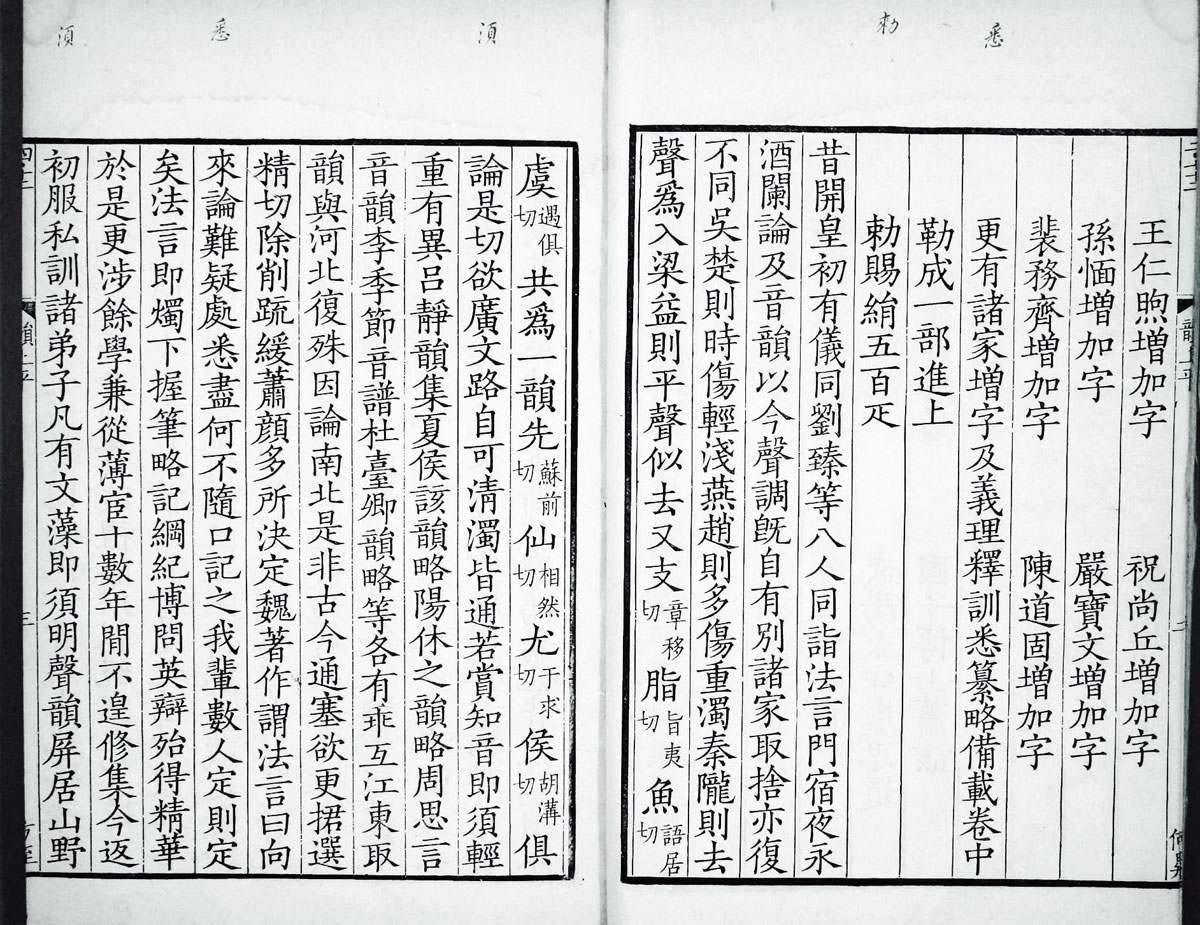 悉
勑
王仁煦增加字　祝尚丘增加字
孫愐增加字　嚴寶文增加字
裴務齊增加字　陳道固增加字
更有諸家增字及義理釋訓悉纂略備載卷中
勒成一部進上
勑賜絹五百疋
昔開皇初有儀同劉臻等八人同詣法言門宿夜永
酒闌論及音韻以今聲調旣自有別諸家取捨亦復
不同吳楚則時傷輕淺燕趙則多傷重濁秦隴則去
聲爲入梁益則平聲似去又支章移切脂旨夷切魚語居切
須
悉
須
虞遇俱切共爲一韻先蘇前切仙相然切尤于求切侯胡溝切俱
論是切欲廣文路自可淸濁皆通若賞知音即須輕
重有異呂靜韻集夏侯該韻略陽休之韻略周思言
音韻李季節音譜杜臺卿韻略等各有乖互江東取
韻與河北復殊因論南北是非古今通塞欲更捃選
精切除削疏緩蕭顏多所決定魏著作謂法言曰向
來論難疑處悉盡何不隨口記之我輩數人定則定
矣法言即燭下握筆略記綱紀博問英辯殆得精華
於是更涉餘學兼從薄宦十數年閒不遑修集今返
初服私訓諸弟子凡有文藻即須明聲韻屏居山野
三